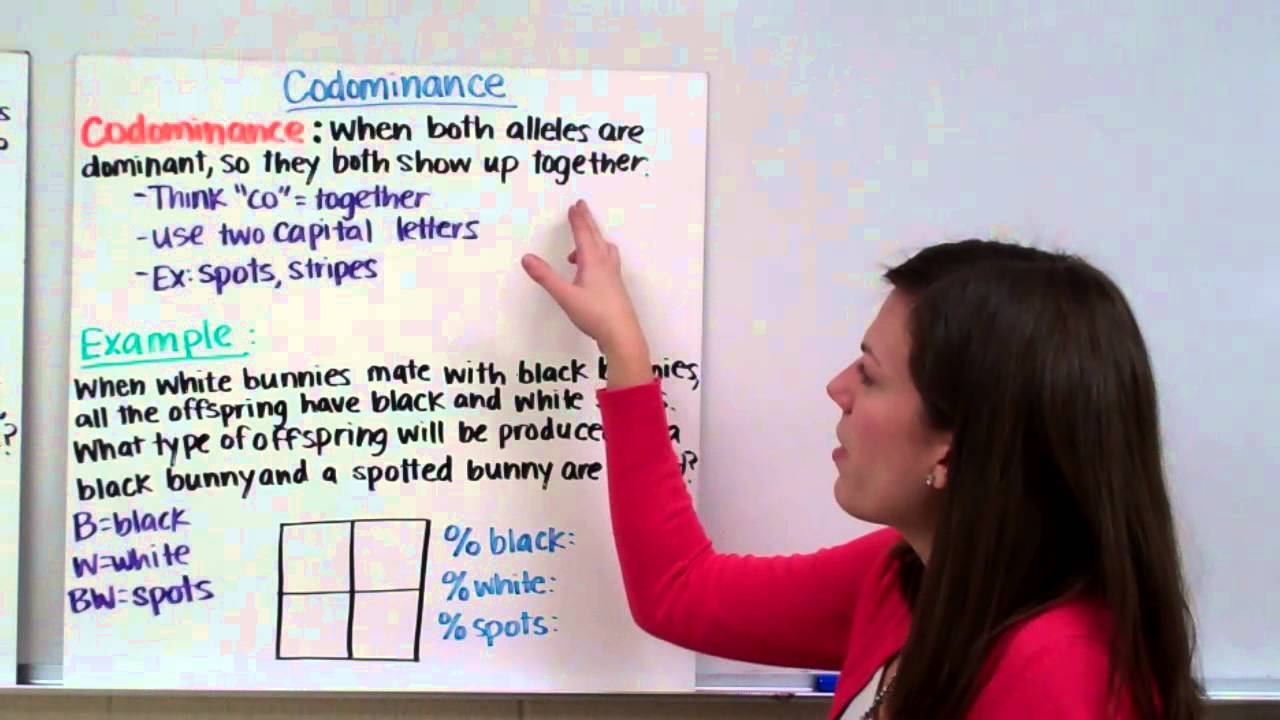 Codominance
Codominance: When both alleles are
dominant, so they both show up together.
-Think "co" = together
-use two capital letters
-Ex: spots, stripes
Example:
When white bunnies mate with black
all the offspring have black and white
What type of offspring will be produce a
black bunny and a spotted bunny are ?
B=black
W=white
BW=spots
% black:
% white:
% spots:
?